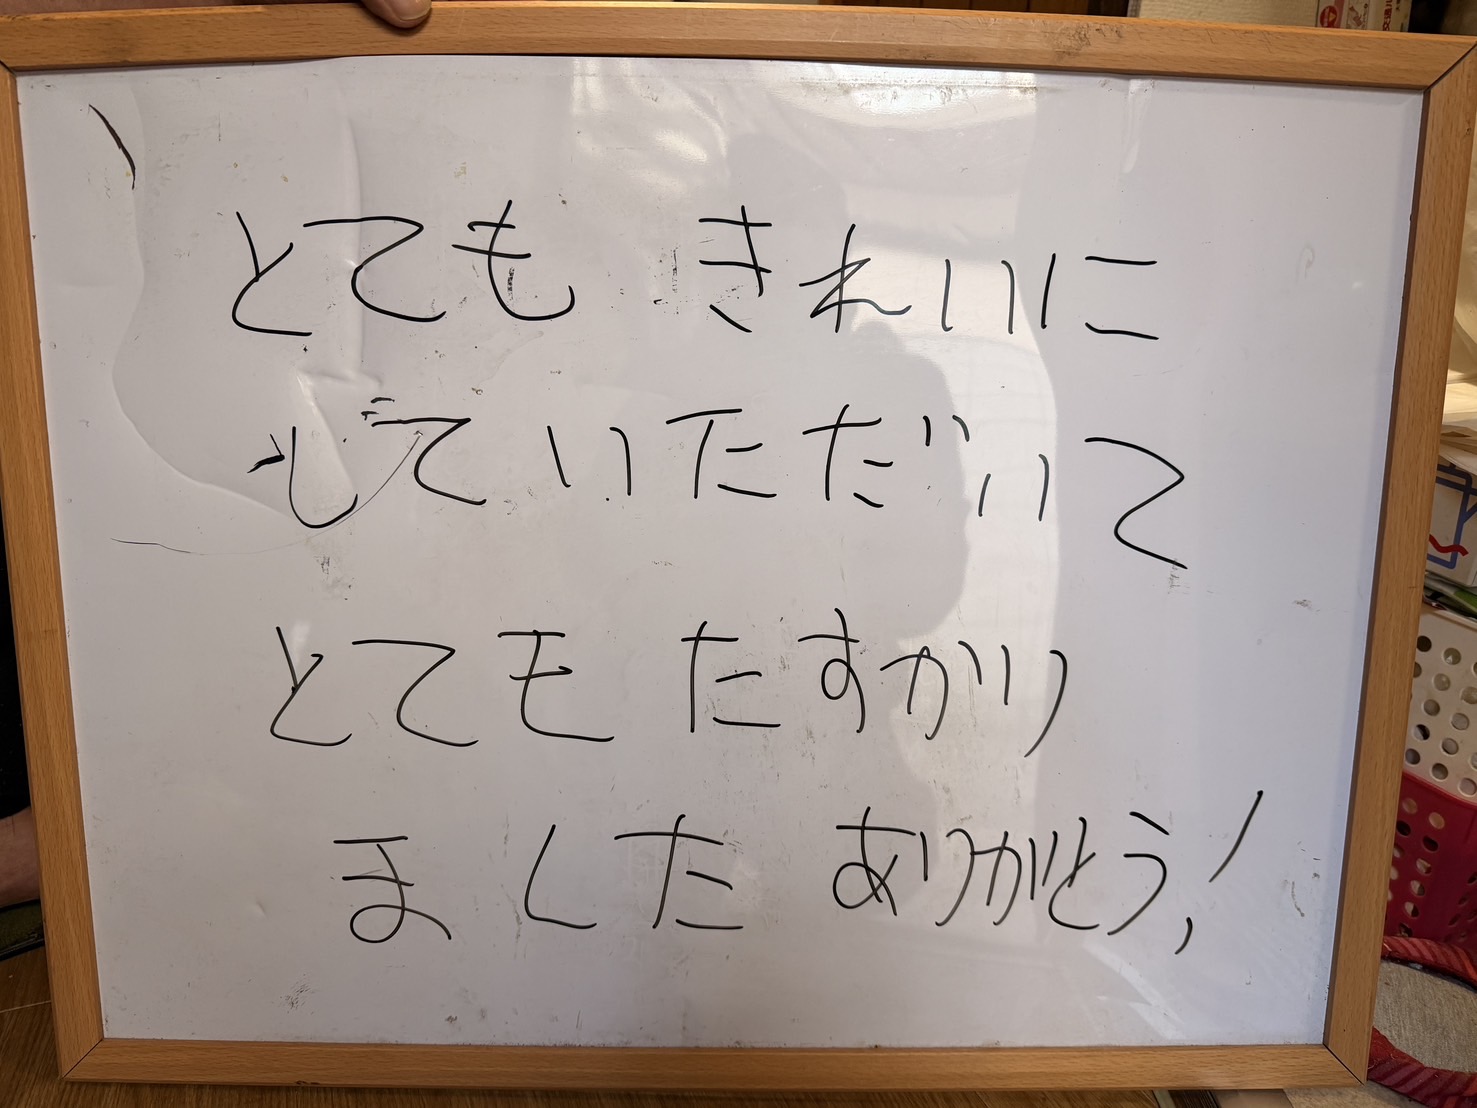 とても きれいに
していただいて
とても たすかり
ました ありがとう!